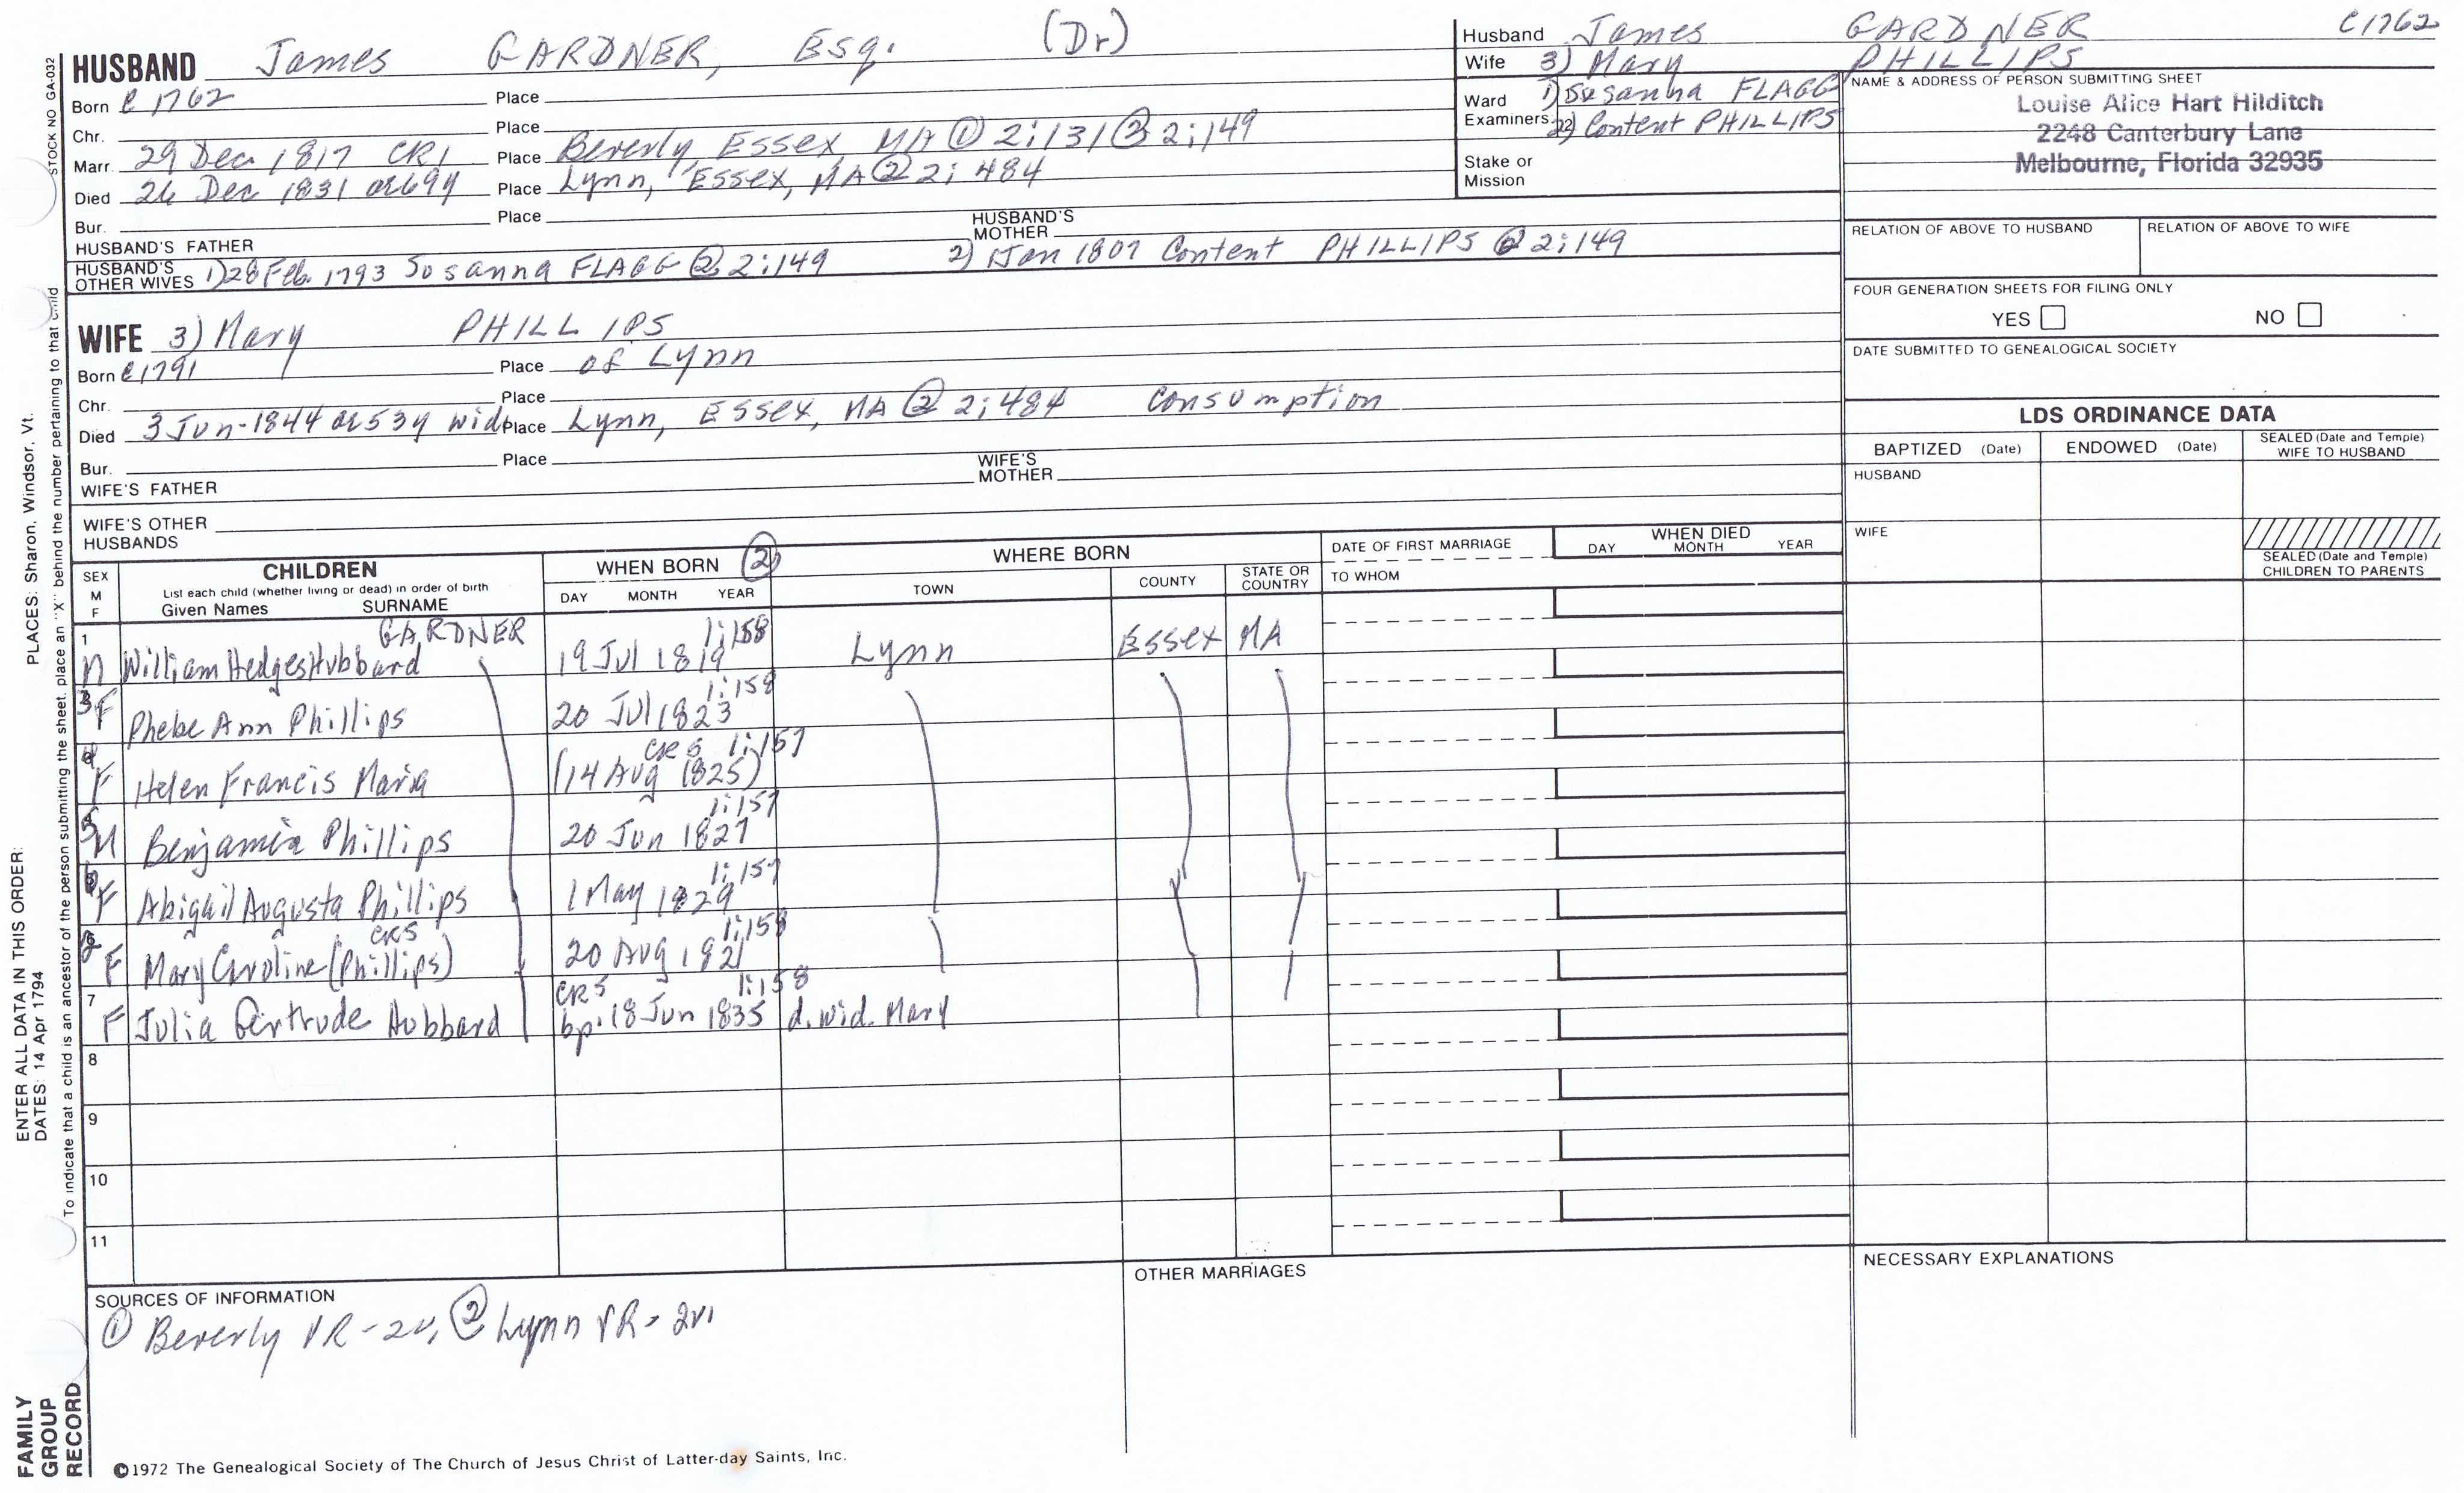 HUSBAND James GARDNER, Esq. (Dr)
Born c 1762 Place
Chr. Place
Marr. 29 Dec 1817 CR1 Place Beverly, Essex MA ① 2:131 ② 2:149
Died 26 Dec 1831 ae69y Place Lynn, Essex, MA ② 2: 484
Bur. Place
HUSBAND'S FATHER HUSBAND'S MOTHER
HUSBAND'S OTHER WIVES 1) 28 Feb. 1793 Susanna FLAGG ② 2:149 2) 1 Jan 1807 Content PHILLIPS ② 2:149
WIFE 3) Mary PHILLIPS
Born c 1791 Place of Lynn
Chr. Place
Died 3 Jun 1844 ae53y wid Place Lynn, Essex, MA ② 2:484 Consumption
Bur. Place
WIFE'S FATHER WIFE'S MOTHER
WIFE'S OTHER HUSBANDS
Husband James GARDNER c1762
Wife 3) Mary PHILLIPS
Ward 1) Susanna FLAGG
Examiners: 2) Content PHILLIPS
Stake or
Mission
NAME & ADDRESS OF PERSON SUBMITTING SHEET
Louise Alice Hart Hilditch
2248 Canterbury Lane
Melbourne, Florida 32935
RELATION OF ABOVE TO HUSBAND RELATION OF ABOVE TO WIFE
FOUR GENERATION SHEETS FOR FILING ONLY
YES NO
DATE SUBMITTED TO GENEALOGICAL SOCIETY
LDS ORDINANCE DATA
BAPTIZED (Date) ENDOWED (Date) SEALED (Date and Temple) WIFE TO HUSBAND
HUSBAND
WIFE
SEALED (Date and Temple) CHILDREN TO PARENTS
SEX M F
CHILDREN
List each child (whether living or dead) in order of birth
Given Names SURNAME
WHEN BORN ②
DAY MONTH YEAR
WHERE BORN
TOWN COUNTY STATE OR COUNTRY
DATE OF FIRST MARRIAGE
TO WHOM
WHEN DIED
DAY MONTH YEAR
GARDNER 1:158
1 M William Hedges Hubbard 19 Jul 1819 Lynn Essex MA
1:158
3 F Phebe Ann Phillips 20 Jul 1823
CR5 1:157
4 F Helen Francis Maria (14 Aug 1825)
1:157
5 M Benjamin Phillips 20 Jun 1827
1:157
6 F Abigail Augusta Phillips 1 May 1829
CR5 1:158
2 F Mary Caroline (Phillips) 20 Aug 1821
CR5 1:158
7 F Julia Gertrude Hubbard bp. 18 Jun 1835 d. wid. Mary
8
9
10
11
SOURCES OF INFORMATION
① Beverly VR - 2v, ② Lynn VR - 2v
OTHER MARRIAGES
NECESSARY EXPLANATIONS
©1972 The Genealogical Society of The Church of Jesus Christ of Latter-day Saints, Inc.
STOCK NO GA-032
To indicate that a child is an ancestor of the person submitting the sheet, place an "X" behind the number pertaining to that child
ENTER ALL DATA IN THIS ORDER: PLACES: Sharon, Windsor, Vt.
DATES: 14 Apr 1794
FAMILY
GROUP
RECORD